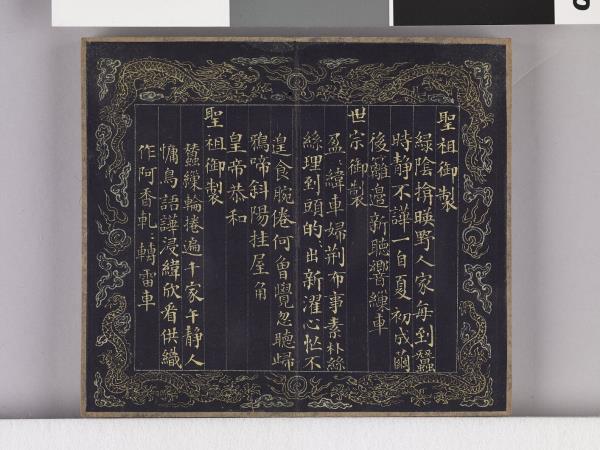 聖祖御製
綠陰揜暎野人家每到蠶
時静不譁一自夏初成繭
後籬邊新聽響繅車
世宗御製
盈〻緯車婦荆布事素朴絲
絲理到頭的〻出新濯心忙不
遑食腕倦何曾覺忽聽歸
鴉啼斜陽挂屋角
皇帝恭和
聖祖御製
蠶繅輪捲遍千家午静人
慵鳥語譁浸緯欣看供織
作阿香軋〻轉雷車